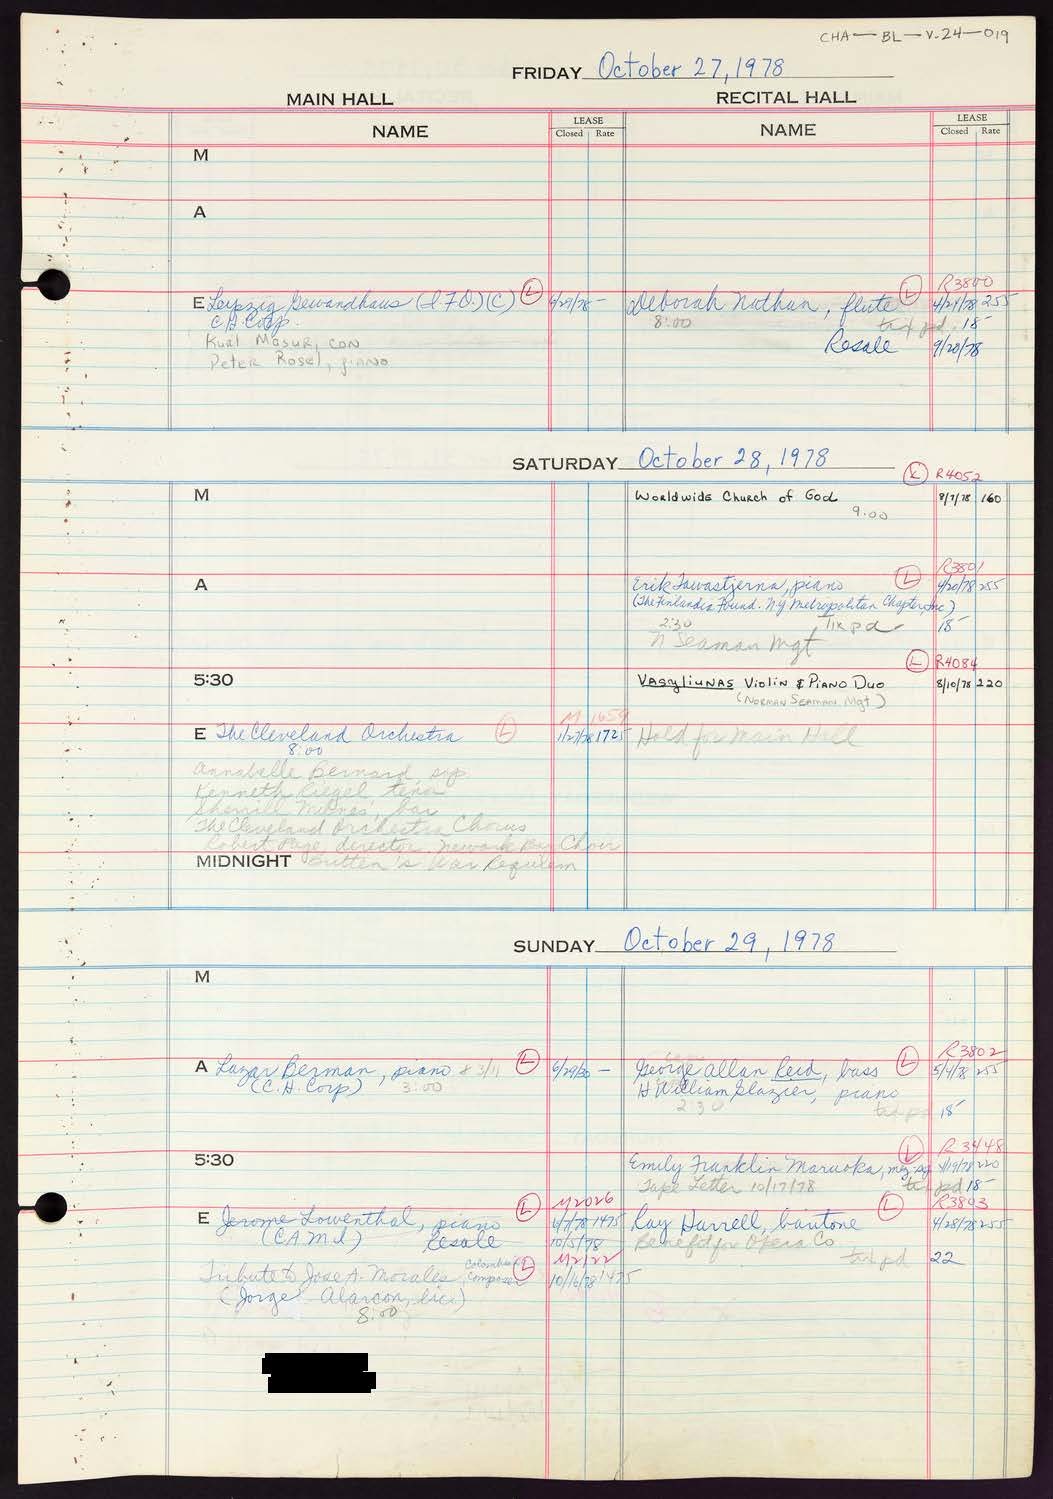 CHA — BL — V.24 — 019
FRIDAY October 27, 1978
MAIN HALL
RECITAL HALL
NAME
LEASE
Closed Rate
NAME
LEASE
Closed Rate
M
A
R3800
E Leipzig Gewandhaus (I.F.O.) (C) L 6/29/78 –
Deborah Nathan, flute L 4/21/78 255
C.H. Corp.
8:00 tax pd. 18–
Kurt Masur, con
Resale 9/20/78
Peter Rosel, piano
SATURDAY October 28, 1978
L R4052
M
Worldwide Church of God 8/7/78 160
9:00
R3801
A
Erik Tawastjerna, piano L 4/20/78 255
(The Finlandia Found. NY Metropolitan Chapter, Inc)
2:30 Tax pd 18–
N Seaman Mgt
L R4084
5:30
Vasyliunas Violin & Piano Duo 8/10/78 220
(Norman Seaman Mgt)
M 1659
E The Cleveland Orchestra L 1/27/78 1725
Hold for Main Hall
8:00
Annabelle Bernard, sop
Kenneth Riegel, tenor
Sherrill Milnes, bar
The Cleveland Orchestra Chorus
Robert Page, director. Newark Boy Choir
MIDNIGHT Britten's War Requiem
SUNDAY October 29, 1978
M
R3802
A Lazar Berman, piano L –
George Allan Reid, bass L 5/4/78 255
(C.H. Corp) 3:00
H William Glazier, piano
2:30 tax pd 18–
R 3448
5:30
Emily Franklin Maruoka, mez. sop L 4/19/78 220
Tape Letter 10/17/78 tax pd 18–
L M2026
R3803
E Jerome Lowenthal, piano 6/7/78 1475
Ray Harrell, baritone L 4/28/78 255
(CAMI) Resale 10/5/78
Benefit for Opera Co
M2122
tax pd 22
Tribute to Jose A. Morales, Colombian Composer L 10/16/78 1475
(Jorge Alarcon, lic.)
8:00